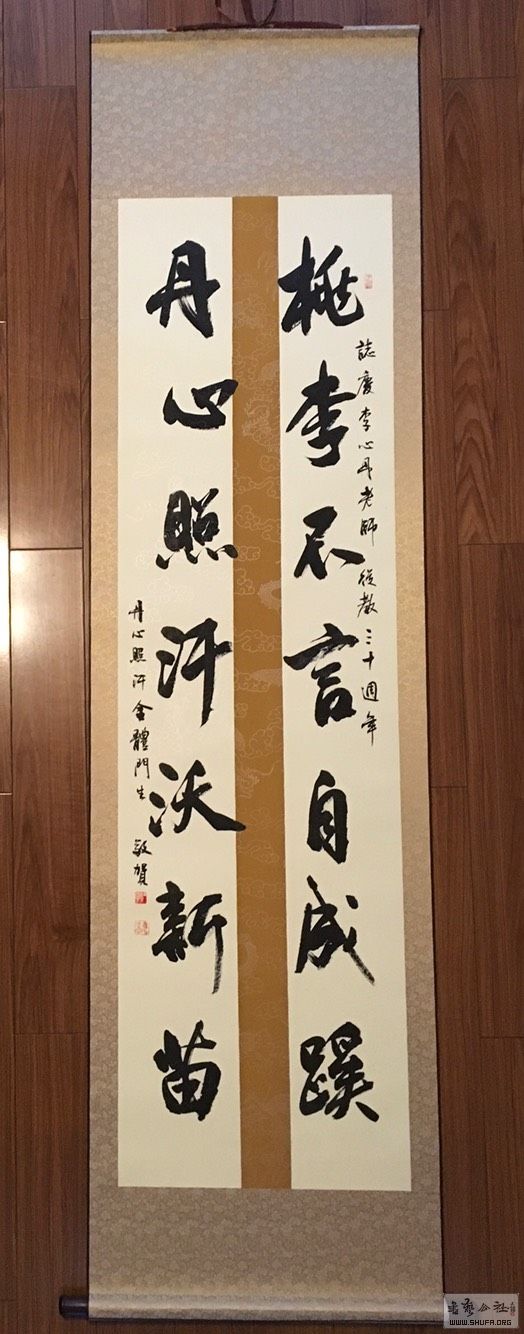 桃李不言自成蹊
誌慶李心丹老師從教三十週年
丹心照汗沃新苗
丹心照汗全體門生 敬賀
書藝公社
WWW.SHUFA.ORG